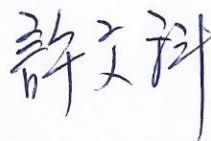 許文科